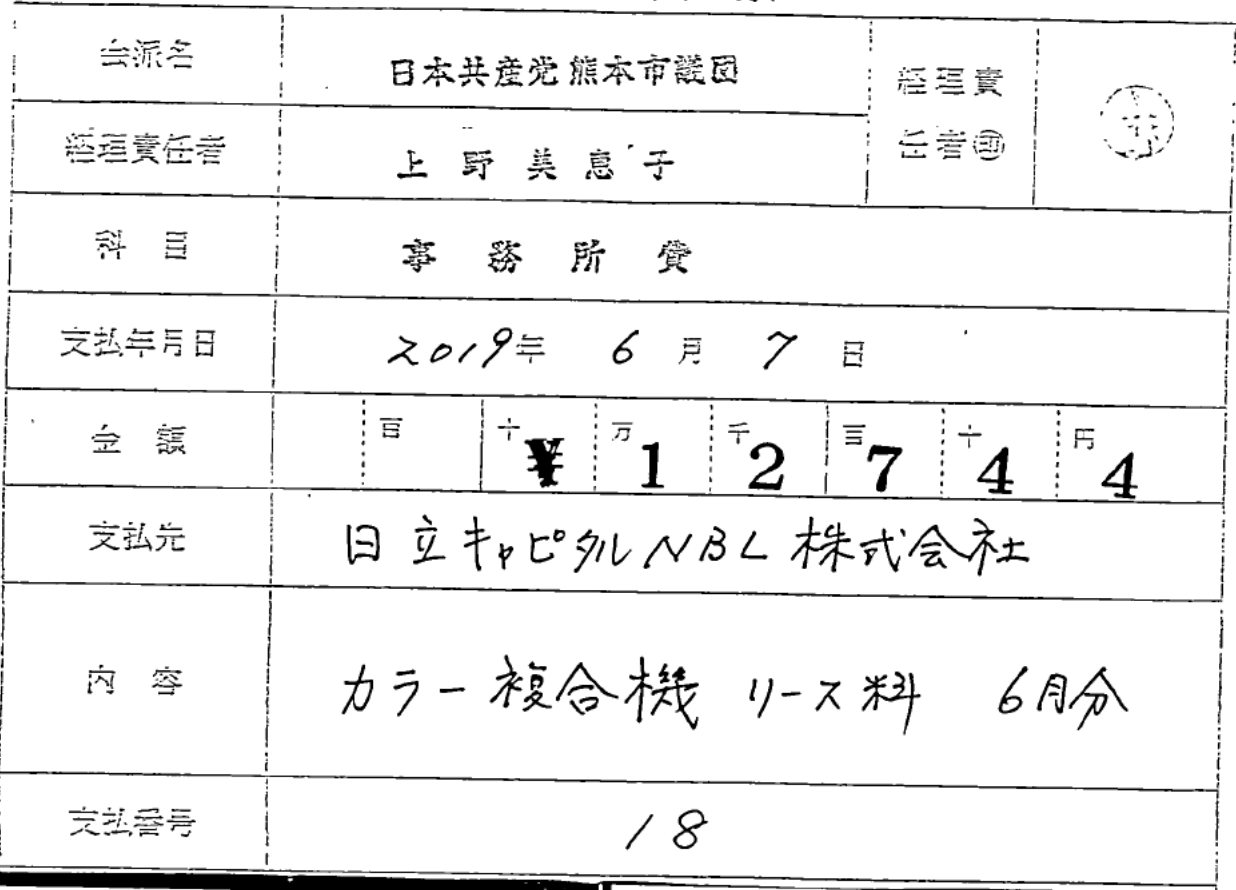 会派名 日本共産党熊本市議団 経理責任者㊞
経理責任者 上野美恵子
科目 事務所費
支払年月日 2019年 6月 7日
金額 百 十 万 千 百 十 円 ¥12744
支払先 日立キャピタルNBL株式会社
内容 カラー複合機 リース料 6月分
支払番号 18